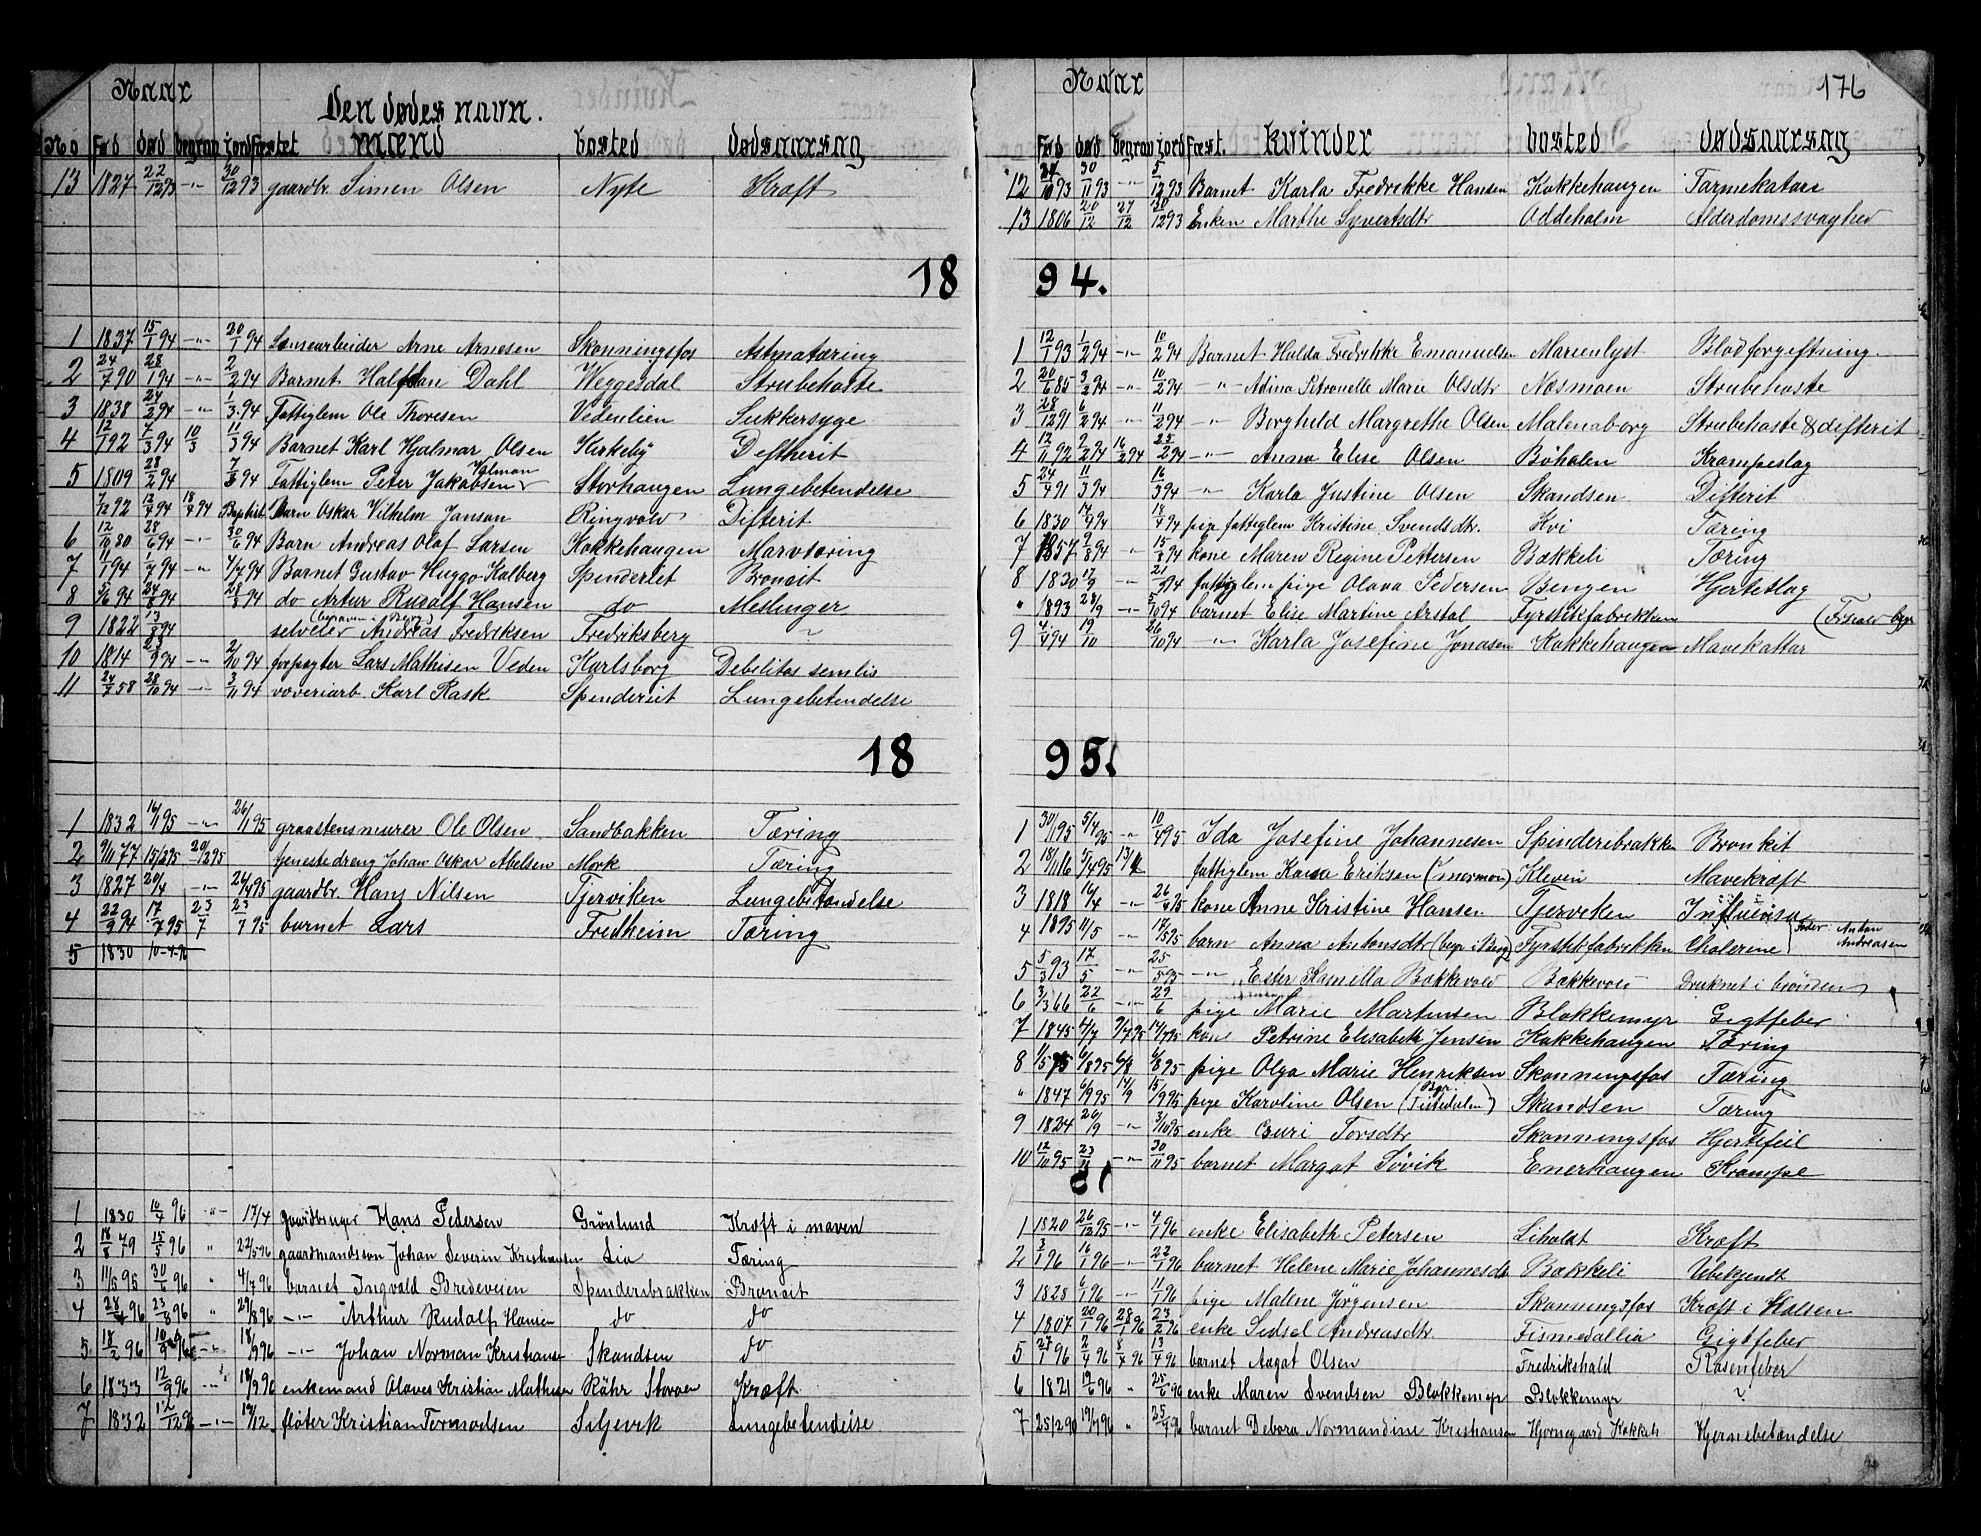 176
Naar
Den dødes navn.
No Fød død begrav jordfæstet mænd bosted dødsaarsag
13 1827 22/12 93 -"- 30/12 93 gaardbr. Simen Olsen Nyte Kræft
18
1 1837 15/1 94 -"- 20/1 94 Lænsearbeider Arne Arnesen Skonningsfos Astmatæring
2 24/7 90 28/1 94 -"- 2/2 94 Barnet Halfdan Dahl Weggesdal Strubehoste
3 1838 24/2 94 -"- 1/3 94 Fattiglem Ole Thoresen Vedenlien Sukkersyge
4 12/1 92 4/3 94 10/3 11/3 94 Barnet Karl Hjalmar Olsen Kirkeby Deftherit
5 1809 28/2 94 7/3 94 Fattiglem Peter Jakobsen Holman Storhaugen Lungebetendelse
7/12 92 12/4 94 18/4 94 Baptist Barn Oskar Vilhelm Janson Ringvold Difterit
6 12/10 80 28/6 94 -"- 30/6 94 Barn Andreas Olaf Larsen Kokkehaugen Marvtæring
7 11/1 94 /7 94 -"- 4/7 94 Barnet Gustav Huggo Kalberg Spenderiet Bronsit
8 3/6 94 24/8 94 24/8 94 do Artur Rudolf Hansen do Meslinger
9 1822 13/8 94 selveier (begraven i Berg) Andreas Fredriksen Fredriksberg "
10 1814 23/9 94 -"- 2/10 94 forpagter Lars Mathisen Veden Karlsborg Debelitas semlis
11 24/7 58 28/10 94 -"- 3/11 94 væveriarb. Karl Rask Spenderiet Lungebetendelse
18
1 1832 16/1 95 -"- 26/1 95 graastensmurer Ole Olsen Sandbakken Tæring
2 9/11 77 15/2 95 20/2 95 tjenestedreng Johan Oskar Abelsen Mørk Tæring
3 1827 20/4 -"- 26/4 95 gaardbr. Hans Nilsen Tjerviken Lungebetendelse
4 22/9 94 17/7 95 23/7 23/7 95 barnet Lars Fredheim Tæring
5 1830 10-4-96
1 1830 10/4 96 -"- 17/4 gaardbruger Hans Pedersen Grönlund Kræft i maven
2 18/8 79 15/5 96 " 22/5 96 gaardmandssön Johan Severin Kristiansen Lia Tæring
3 11/5 95 30/6 96 " 4/7 96 barnet Ingvald Bredeveien Spinderibrakken Bronsit
4 28/4 96 23/8 96 " 29/8 96 -"- Arthur Rudolf Hansen do do
5 18/2 96 10/9 96 -"- 18/9 96 -"- Johan Norman Kristiansen Skandsen do
6 1833 12/9 96 -"- 18/9 96 enkemand Olaves Kristian Mathisen Röhr Stoveen Kræft
7 1832 12/12 96 -"- 19/12 fløter Kristian Tormodsen Siljevik Lungebetendelse
Naar
Fød død begrav jordfæst. kvinder bosted dødsaarsag
12 24/10 93 30/11 93 -"- 5/12 93 Barnet Karla Fredrikke Hansen Kokkehaugen Tarmekatarr
13 1806 20/12 27/12 30/12 93 Enken Marthe Syvertsdtr Oddeholm Alderdomssvaghed
94.
1 12/1 93 1/2 94 -"- 10/2 94 Barnet Hulda Fredrikke Emanuelsen Marienlyst Blodforgeftning
2 20/6 85 3/2 94 -"- 10/2 94 -"- Adina Petronelle Marie Olsdtr Næsmoen Strubehoste
3 28/12 91 6/2 94 11/2 94 -"- Borghild Margrethe Olsen Malenaborg Strubehoste & difterit
4 12/11 92 9/2 94 16/2 94 25/2 94 -"- Anna Elise Olsen Böhalen Krampeslag
5 24/4 91 11/3 94 16/3 94 -"- Karla Justine Olsen Skandsen Difterit
6 1830 14/4 94 18/4 94 pige fattiglem Kristine Svendsdtr. Kvi Tæring
7 1857 9/8 94 -"- 15/8 94 kone Maren Regine Pettersen Bækkeli Tæring
8 1830 17/9 -"- 21/9 94 fattiglem pige Olava Pedersen Bengen Hjerteslag
" 1893 28/9 -"- 5/10 94 barnet Elise Martine Arstal Fyrstikfabrikken
9 4/4 94 19/10 26/10 94 -"- Karla Josefine Jonasen Kokkehaugen Mavekattar
95.
1 30/1 95 5/4 95 -"- 10/4 95 Ida Josefine Johannesen Spinderibrakken Bronkit
2 18/1 16 5/4 95 13/4 fattiglem Karna Eriksen (mormon) Kleven Mavekræft
3 1818 16/4 -"- 26/4 95 kone Anne Kristine Hansen Tjerveken Influensa
4 1895 11/5 -"- 17/5 95 barn Anna Antonsdtr (begr i Berg) Fyrstikfabrikken Cholerine Fader: Anton Andreasen
5 5/3 93 17/5 -"- 25/5 95 -"- Ester Kamilla Bækkevold Bækkevold Druknet i brönden
6 3/3 66 22/6 -"- 29/6 pige Marie Martinsen Blokkemyr Gigtfeber
7 1845 4/7 9/7 95 14/7 95 kone Petrine Elisabeth Jensen Kokkehaugen Tæring
8 1/5 75 6/8 95 6/8 6/8 95 pige Olga Marie Henriksen Skonningsfos Tæring
" 1847 6/9 95 14/9 15/9 95 pige Karoline Olsen (Bgr. Tistedalen) Skandsen Tæring
9 1824 26/9 -"- 3/10 95 enke Guri Torsdtr Skonningsfos Hjertefeil
10 12/10 95 23/11 -"- 30/11 95 barnet Margot Søvik Enerhaugen Krampe
1 1820 26/12 95 -"- 4/1 96 enke Elisabeth Petersen Liholdt Kræft
2 3/1 96 16/1 96 -"- 22/1 96 barnet Helene Marie Johannesdtr Bækkeli Ubekjendt
3 1828 6/1 96 -"- 11/1 96 pige Malene Jörgensen Skonningsfos Kræft i Halsen
4 1807 20/1 96 28/1 96 23/2 96 enke Sidsel Andreasdtr. Fismedallia Gigtfeber
5 27/1 96 2/4 96 8/4 96 13/4 96 barnet Aagot Olsen Fredrikshald Rosenfeber
6 1821 19/6 96 " 25/6 96 enke Maren Svendsen Blokkemyr Blokkemyr ?
7 25/2 90 19/7 96 " 25/7 96 barnet Debora Normandine Kristiansen Hjørnegaard Kokkeh Hjernebetændelse